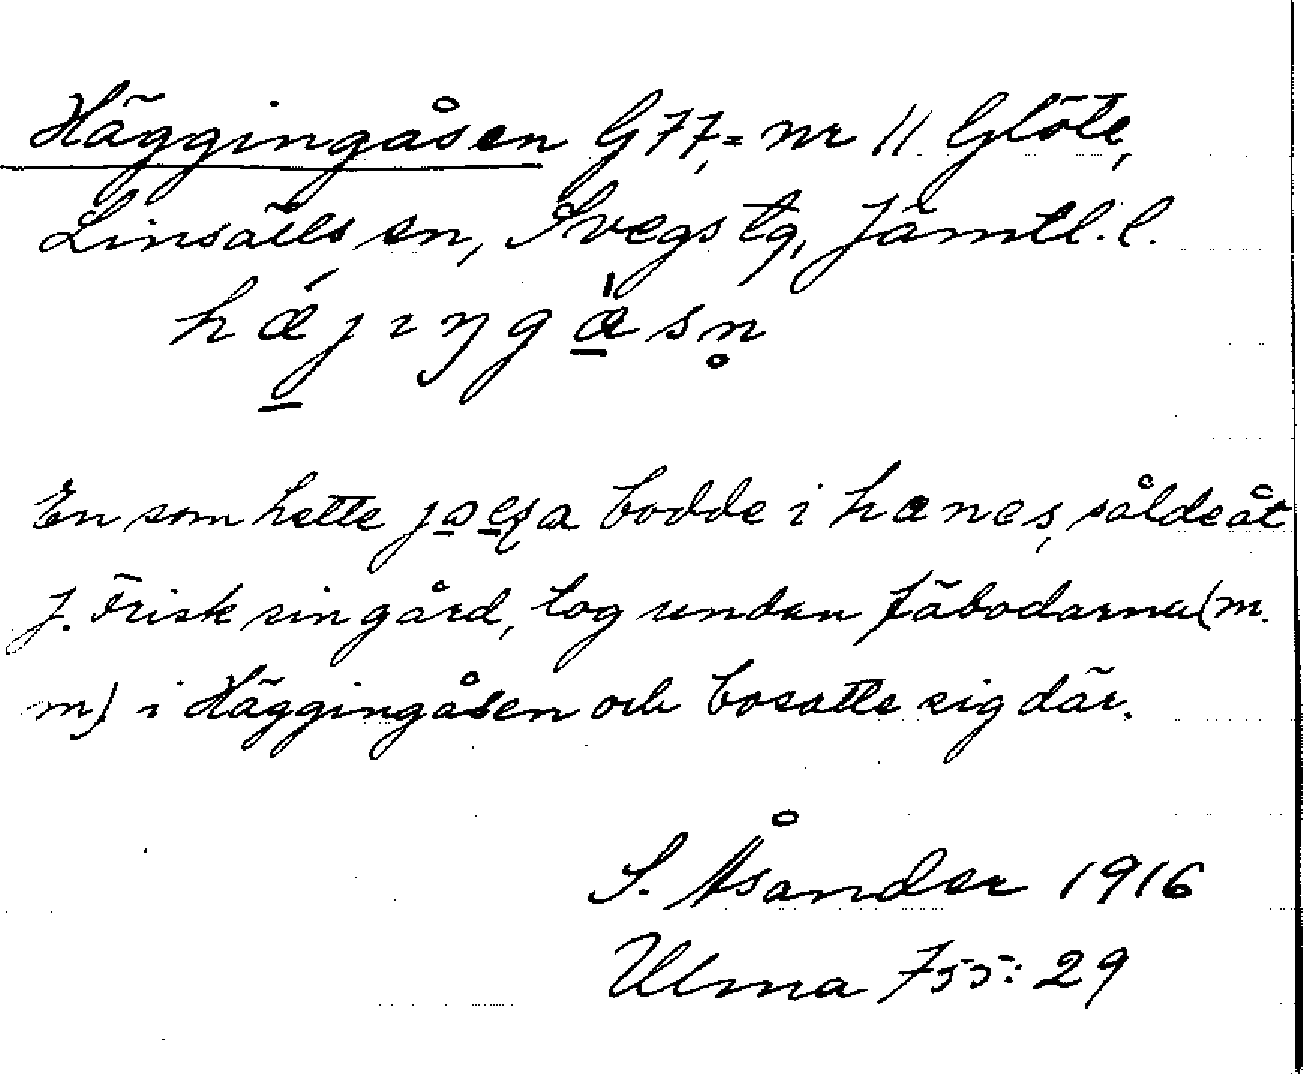 Häggingåsen G 77, = nr 11 Glöte,
Linsälls sn, Svegs tg, Jämtl. l.
hǽjıŋgàsn̥
En som hette bodde i hanes, sålde åt
J. Frisk sin gård, tog undan fäbodarna (m.
m) i Häggingåsen och bosatte sig där.
S. Åsander 1916
Ulma 755: 29